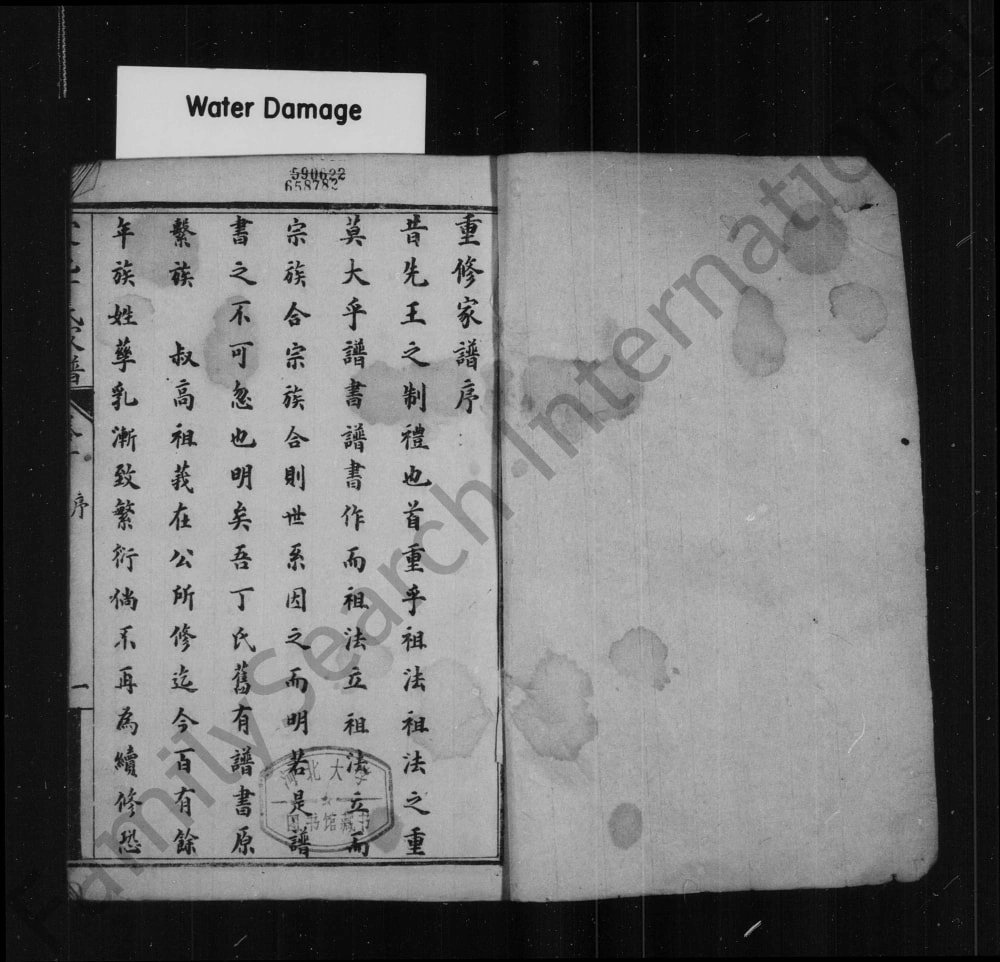 Water Damage
590622
658782
重修家譜序
昔先王之制禮也首重乎祖法祖法之重
莫大乎譜書譜書作而祖法立祖法立而
宗族合宗族合則世系因之而明若是譜
書之不可忽也明矣吾丁氏舊有譜書原
繫族 叔高祖莪在公所修迄今百有餘
年族姓孳乳漸致繁衍倘不再為續修恐
氏家譜
序
一
河北大學
图书馆藏书
FamilySearch International